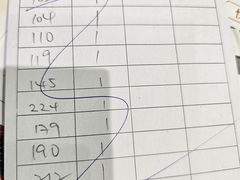 104 1
110 1
119 1
145 1
224 1
179 1
190 1